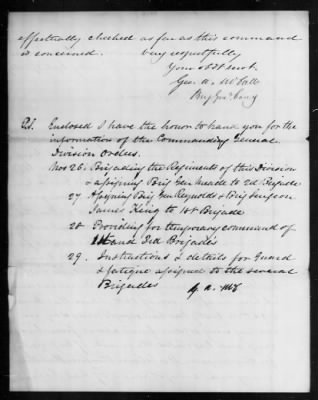 effectually checked as far as this command
is concerned. Very respectfully
Your obdt servt.
Geo. A. McCall
Brig Genl Comg
P.S. Enclosed I have the honor to hand you for the
information of the Commanding General
Division Orders.
Nos 26. Brigading the Regiments of this Division
& assigning Brig Gen Meade to 2d Brigade
27 Assigning Brig Gen Reynolds & Brig Surgeon
James King to 1st Brigade
28 Providing for temporary command of
and 3rd Brigades
29. Instructions & details for Guard
& fatigue assigned to the several
Brigades